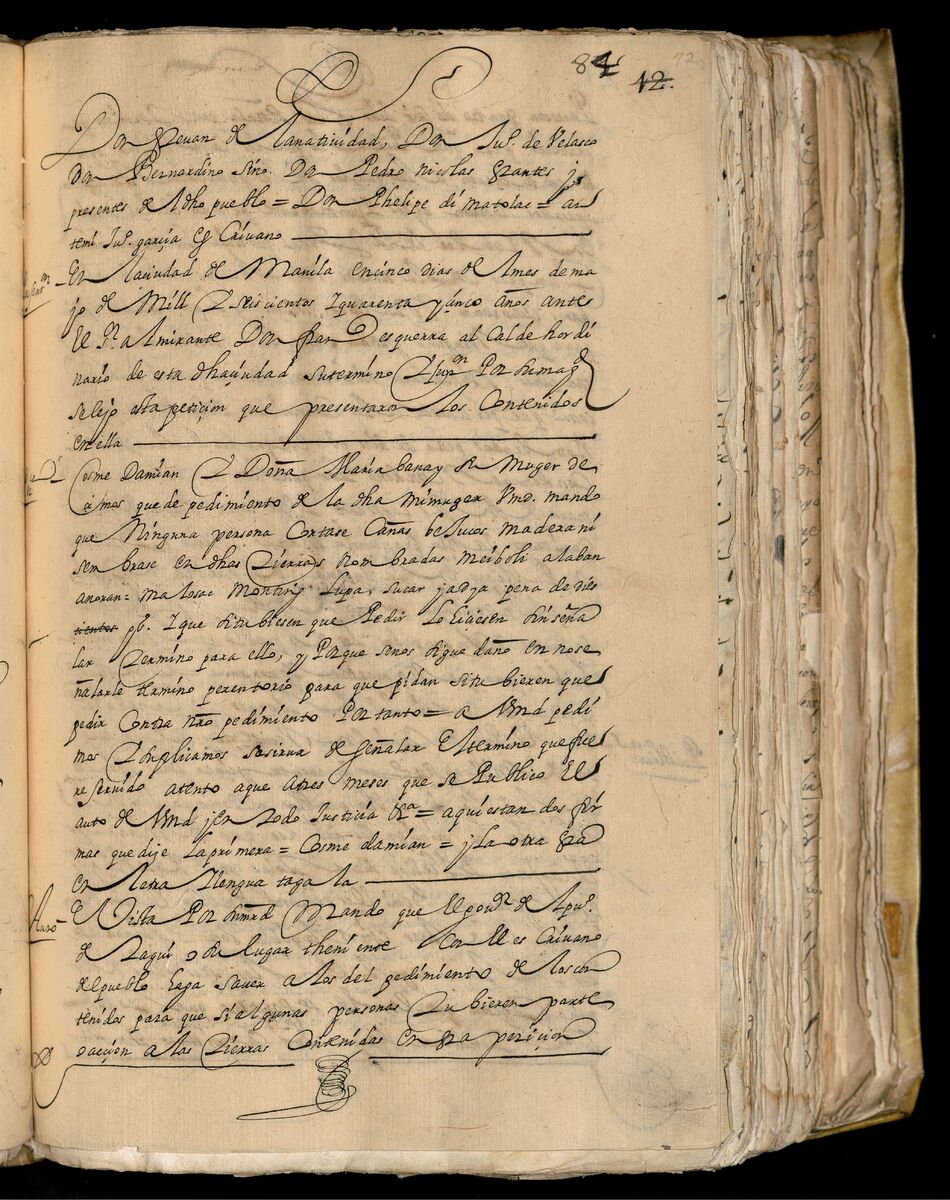 84
12.
Don Juan de la natiuidad, Don Juº. de Velasco
Don Bernardino sino. Don Pedro nicolas
presentes del dho pueblo = Don Phelipe dimatolac = an
temi Juº. garçia esCriuano
En la çiudad de Manila en cinco dias del mes de ma
jo de Mill y seiscientos y quarenta y çinco años ante
el Sr. almirante Don fran desguerra alcalde hordi
nario de esta dha çiudad su termino y jur.on Por su magd
se lejo esta petiçion que presentaron los Contenidos
en ella
Cosme Damian y Doña Maria banay su muger de
cimos que de pedimiento de la dha mi muger Vmd. mando
que Ninguna persona Cortase Cañas beJucos madera ni
sembrase en dhas tierras nombradas meiboli alaban
anoran = malosac Monting Lupa, sucar jadya pena de dies
tientos ps. y que situbiesen que Pedir lo hiçiesen sin seña
lar termino para ello, y Porque se nos sigue daño en no se
ñalarle termino perentorio para que pidan si tubieren que
pedir Contra nro pedimiento Por tanto = a Vmd pedi
mos y suplicamos se sirua de señalar el termino que fue
re seruido atento a que a tres meses que se Publico el
auto de Vmd y en todo Justicia &a = aqui estan dos fir
mas que dije la primera = Cosme damian = y la otra
en letra y lengua tagala
Auto
E Vista Por su mrd Mando que el gour. del pueº.
de taguî o su lugar theniente Con el esCriuano
del pueblo haga sauer a los del pedimiento de los con
tenidos para que si algunas personas tubieren parte
o acçion a las tierras Contenidas en petiçion